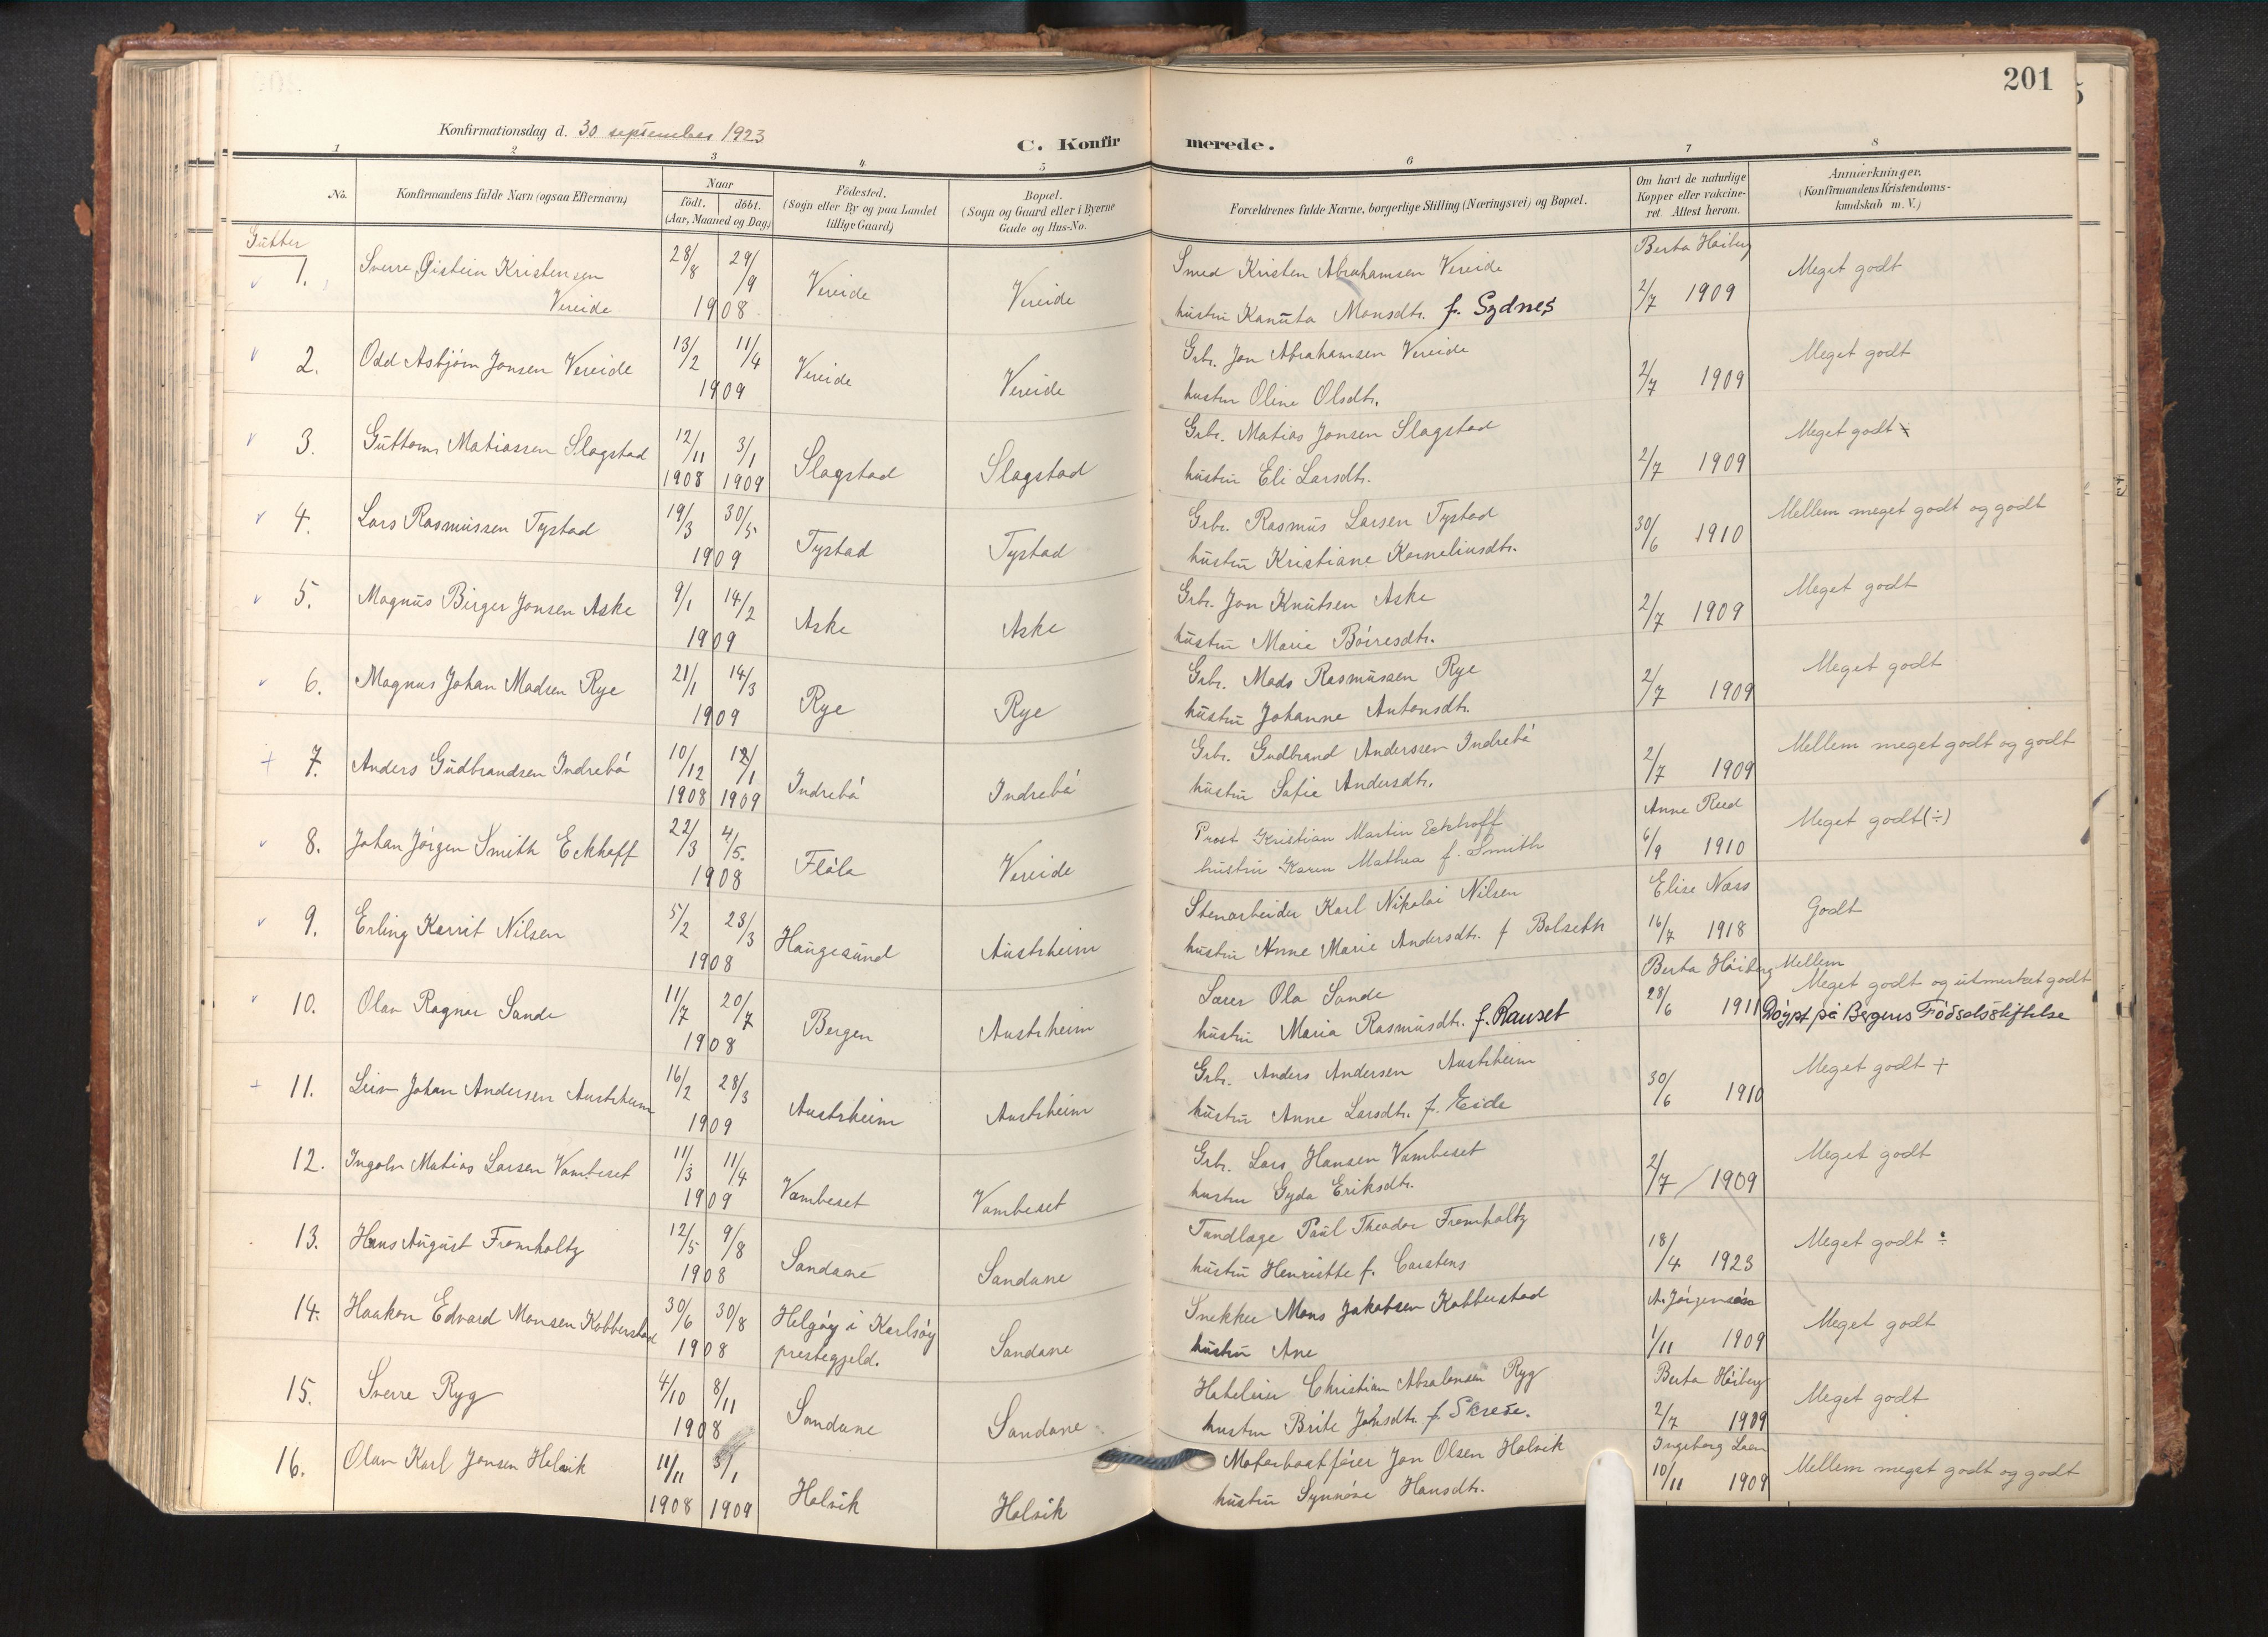 201
Konfirmationsdag d. 30 september 1923
C. Konfir merede.
1 2 3 4 5 6 7 8
No.
Konfirmandens fulde Navn (ogsaa Efternavn)
Naar
født. døbt.
(Aar, Maaned og Dag)
Fødested.
(Sogn eller By og paa Landet
tillige Gaard)
Bopæl.
(Sogn og Gaard eller i Byerne
Gade og Hus-No.
Forældrenes fulde Navne, borgerlige Stilling (Næringsvei) og Bopæl.
Om havt de naturlige
Kopper eller vakcine-
ret. Attest herom.
Anmærkninger.
(Konfirmandens Kristendoms-
kundskab m. V.)
Gutter
1. Sverre Øistein Kristensen 28/8 29/9 Vereide Vereide Smed Kristen Abrahamsen Vereide Berta Høiberg Meget godt
Vereide 1908 hustru Kanuta Monsdtr. f. Sydnes 2/7 1909
2. Odd Asbjørn Jonsen Vereide 13/2 11/4 Vereide Vereide Grbr. Jon Abrahamsen Vereide 2/7 1909 Meget godt
1909 hustru Oline Olsdtr.
3. Guttorm Matiassen Slagstad 12/11 3/1 Slagstad Slagstad Grbr. Matias Jonsen Slagstad 2/7 1909 Meget godt
1908 1909 hustru Eli Larsdtr.
4. Lars Rasmussen Tystad 19/3 30/5 Tystad Tystad Grbr. Rasmus Larsen Tystad 30/6 1910 Mellem meget godt og godt
1909 hustru Kristiane Korneliusdtr.
5. Magnus Birger Jonsen Aske 9/1 14/2 Aske Aske Grbr. Jon Knutsen Aske 2/7 1909 Meget godt
1909 hustru Marie Bøiresdtr.
6. Magnus Johan Madsen Rye 21/1 14/3 Rye Rye Grbr. Mads Rasmussen Rye 2/7 1909 Meget godt
1909 hustru Johanne Antonsdtr.
+ 7. Anders Gudbrandsen Indrebø 10/12 12/1 Indrebø Indrebø Grbr. Gudbrand Anderssen Indrebø 2/7 1909 Mellem meget godt og godt
1908 1909 hustru Sofie Andersdtr.
8. Johan Jørgen Smith Eckhoff 22/3 4/5. Fløla Vereide Prost Kristian Martin Eckhoff Anne Reed Meget godt (÷)
1908 hustru Karen Mathea f. Smith 6/9 1910
9. Erling Kerrit Nilsen 5/2 23/3 Haugesund Austrheim Stenarbeider Karl Nikolai Nilsen Elise Næss Godt
1908 hustru Anne Marie Andersdtr. f Bolseth 16/7 1918
10. Olav Ragnar Sande 11/7 20/7 Bergen Austrheim Lærer Ola Sande Berta Høiberg Mellem
Meget godt og utmerket godt
1908 hustru Maria Rasmusdtr. f. Rauset 28/6 1911 Døypt på Bergens Fødselsstiftelse
+ 11. Leiv Johan Andersen Austrheim 16/2 28/3 Austrheim Austrheim Grbr. Anders Andersen Austrheim 30/6 1910 Meget godt +
1909 hustru Anne Larsdtr. f. Eide
12. Ingolv Matias Larsen Vambeset 11/3 11/4 Vambeset Vambeset Grbr. Lars Hansen Vambeset 2/7 1909 Meget godt
1909 hustru Gyda Eriksdtr.
13. Hans August Fromholtz 12/5 9/8 Sandane Sandane Tandlæge Paul Theodor Fromholtz 18/4 1923 Meget godt ÷
1908 hustru Henriette f. Carstens
14. Haakon Edvard Monsen Kobberstad 30/6 30/8 Helgøy i Karlsøy Sandane Snekker Mons Jakobsen Kobberstad A. Jørgensen Meget godt
1908 prestegjeld. hustru Ane 1/11 1909
15. Sverre Ryg 4/10 8/11 Sandane Sandane Hoteleier Christian Absalonsen Ryg Berta Høiberg Meget godt
1908 hustru Brite Jonsdtr. f. Skrede. 2/7 1909
16. Olav Karl Jonsen Holvik 11/11 3/1 Holvik Holvik Motorbaatfører Jon Olsen Holvik Ingeborg Loen Mellem meget godt og godt
1908 1909 hustru Synnøve Hansdtr. 10/11 1909